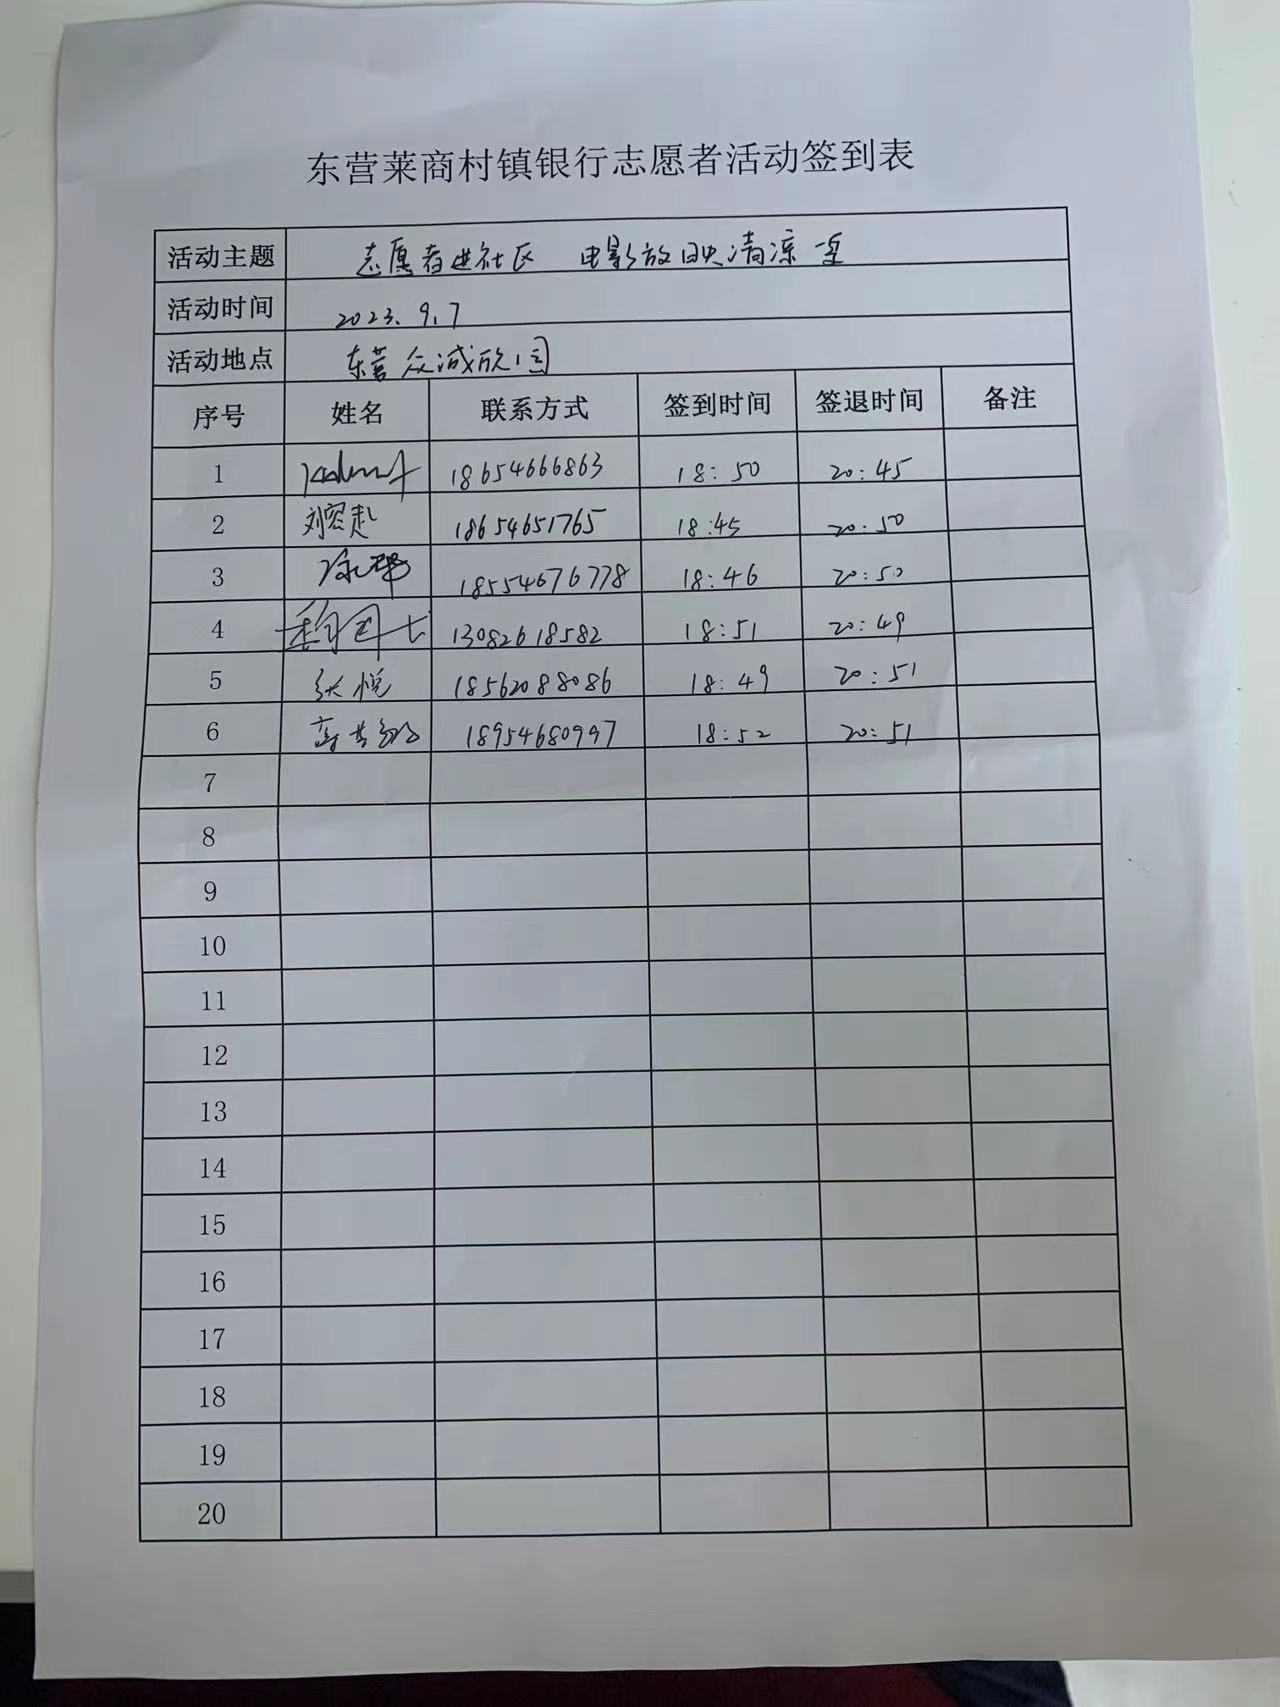 东营莱商村镇银行志愿者活动签到表
活动主题 志愿者进社区 电影放映清凉一夏
活动时间 2023.9.7
活动地点 东营众诚欣园
序号 姓名 联系方式 签到时间 签退时间 备注
1 18654666863 18:50 20:45
2 刘宏赴 18654651765 18:45 20:50
3 18554676778 18:46 20:50
4 13082618582 18:51 20:49
5 张悦 18562088086 18:49 20:51
6 18954680997 18:52 20:51
7
8
9
10
11
12
13
14
15
16
17
18
19
20